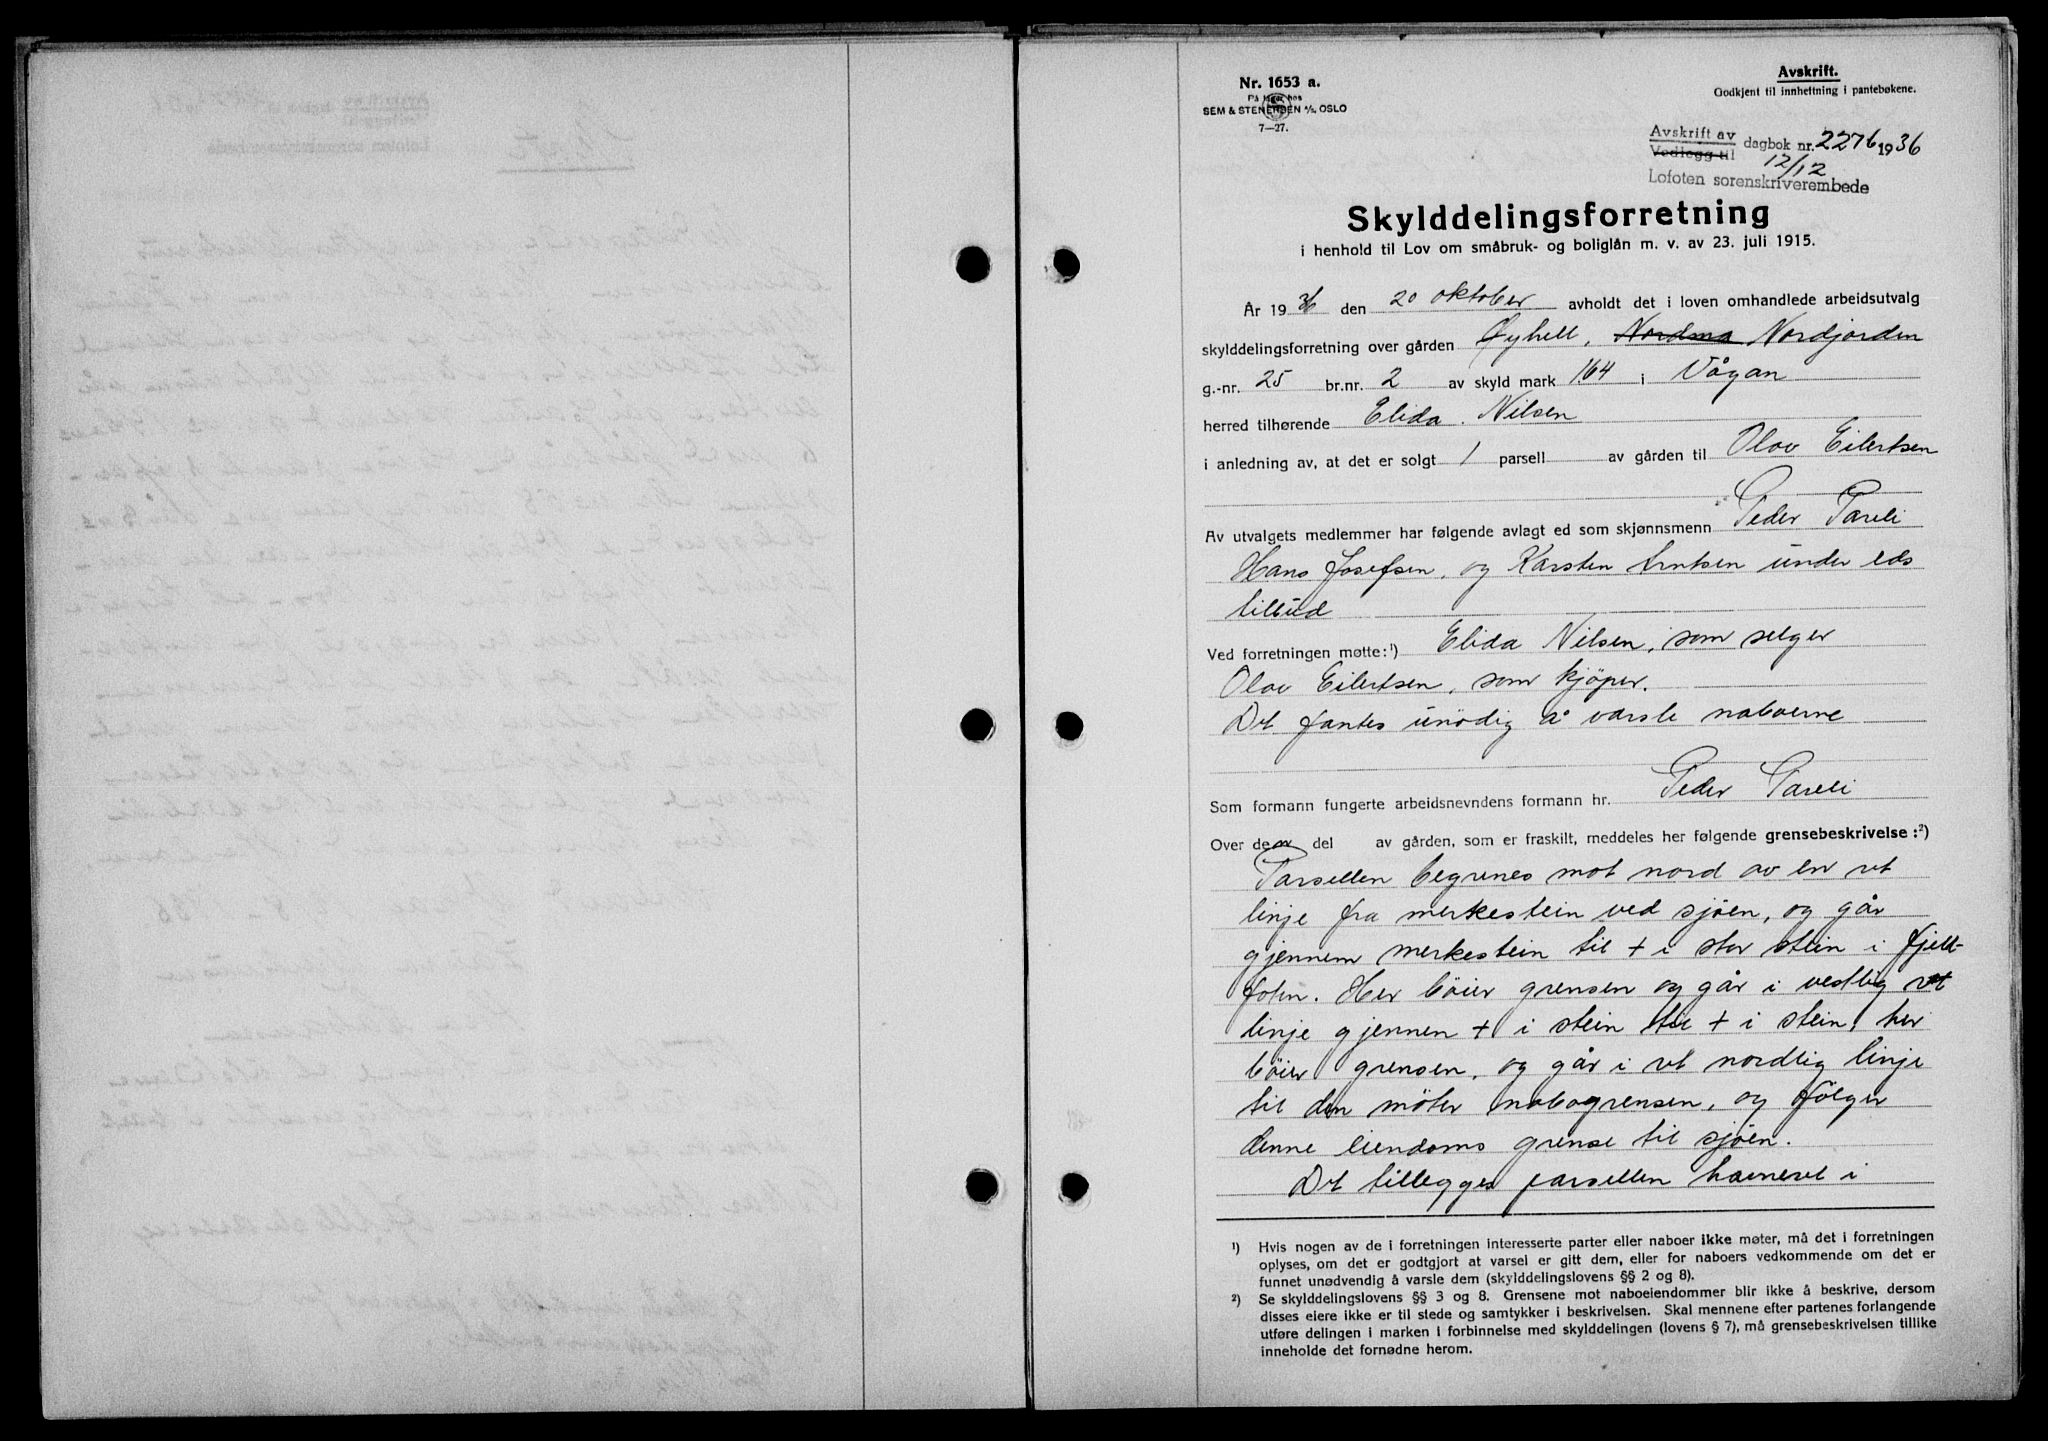 Nr. 1653 a.
På lager hos
SEM & STENERSEN A/S, OSLO
7—27.
Avskrift.
Godkjent til innheftning i pantebøkene.
Avskrift av
Vedlegg til
dagbok nr. 2276 1936
12/12
Lofoten sorenskriverembede
Skylddelingsforretning
i henhold til Lov om småbruk- og boliglån m. v. av 23. juli 1915.
År 1936 den 20 oktober avholdt det i loven omhandlede arbeidsutvalg
skylddelingsforretning over gården Øyhell, Nordma Nordjorden
g.-nr. 25 br.nr. 2 av skyld mark 1.64 i Vågan
herred tilhørende Elida Nilsen
i anledning av, at det er solgt 1 parsell av gården til Olav Eilertsen
Av utvalgets medlemmer har følgende avlagt ed som skjønnsmenn Peder Pareli
Hans Josefsen, og Karsten Arntsen under eds
tilbud
Ved forretningen møtte:¹) Elida Nilsen, som selger
Olav Eilertsen, som kjöper.
Det fantes unödig å varsle naboerne
Som formann fungerte arbeidsnevndens formann hr. Peder Pareli
Over den del av gården, som er fraskilt, meddeles her følgende grensebeskrivelse:²)
Parsellen begrenes mot nord av en ret
linje fra merkestein ved sjöen, og går
gjennem merkestein til + i stor stein i fjell-
foten. Her böier grensen og går i vestlig ret
linje gjennen + i stein til + i stein, her
böier grensen, og går i ret nordlig linje
til den möter nabogrensen, og fölger
denne eiendoms grense til sjöen.
Det tillegges parsellen havneret i
¹) Hvis nogen av de i forretningen interesserte parter eller naboer ikke møter, må det i forretningen
oplyses, om det er godtgjort at varsel er gitt dem, eller for naboers vedkommende om det er
funnet unødvendig å varsle dem (skylddelingslovens §§ 2 og 8).
²) Se skylddelingslovens §§ 3 og 8. Grensene mot naboeiendommer blir ikke å beskrive, dersom
disses eiere ikke er til stede og samtykker i beskrivelsen. Skal mennene efter partenes forlangende
utføre delingen i marken i forbinnelse med skylddelingen (lovens § 7), må grensebeskrivelsen tillike
inneholde det fornødne herom.